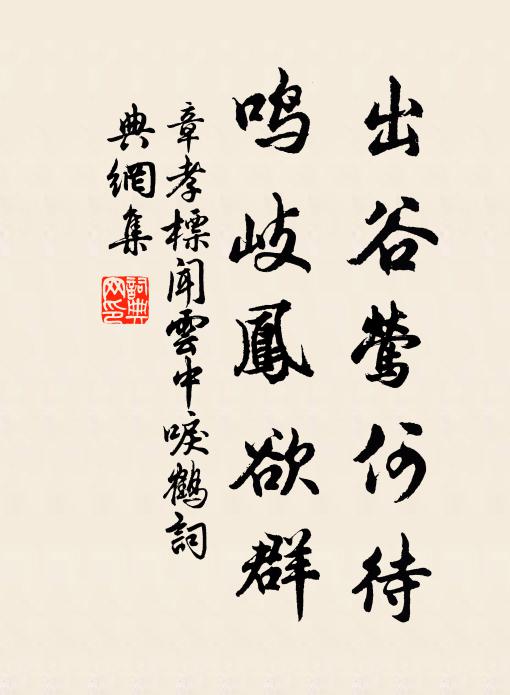 出谷莺何待
鸣岐鳳欲群
章孝標聞雲中唳鶴詞
典網集
詞典网印